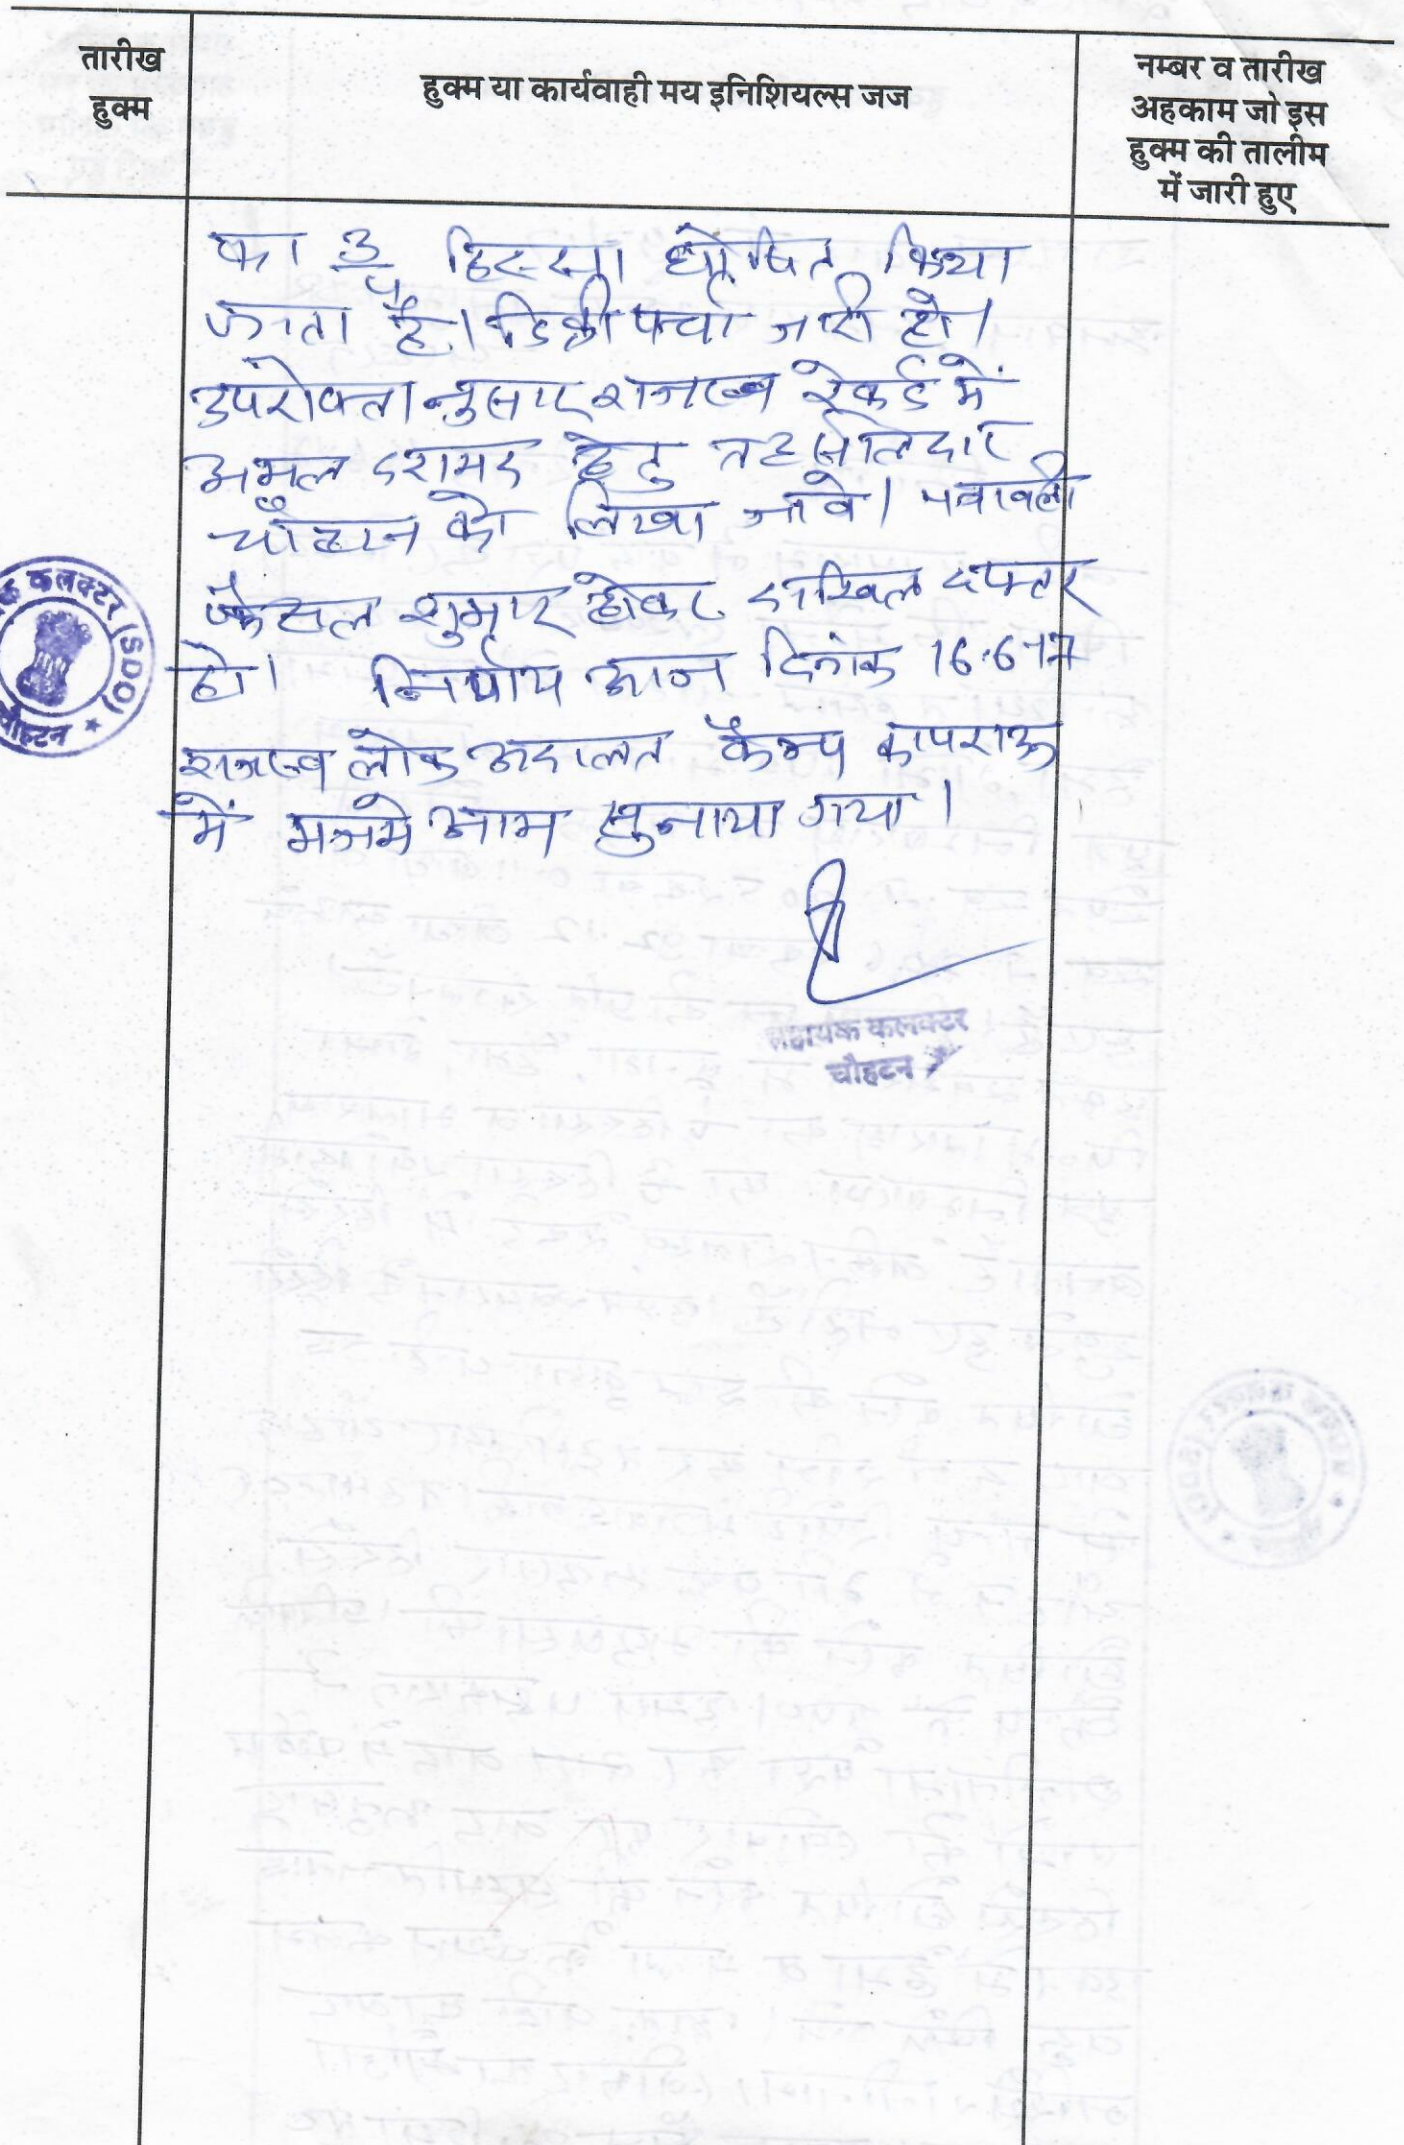 तारीख
हुक्म
हुक्म या कार्यवाही मय इनिशियल्स जज
नम्बर व तारीख
अहकाम जो इस
हुक्म की तालीम
में जारी हुए
का 3/4 हिस्सा घोषित किया
जाता है। डिक्री पर्चा जारी हो।
उपरोक्तानुसार राजस्व रेकर्ड में
अमल दरामद हेतु तहसीलदार
चौहटन को लिखा जावे। पत्रावली
फैसल शुमार होकर दाखिल दफ्तर
हो। निर्णय आज दिनांक 16.6.17
राजस्व लोक अदालत कैम्प कापराऊ
में मजमे आम सुनाया गया।
सहायक कलक्टर
चौहटन
कलक्टर (SDO)
चौहटन